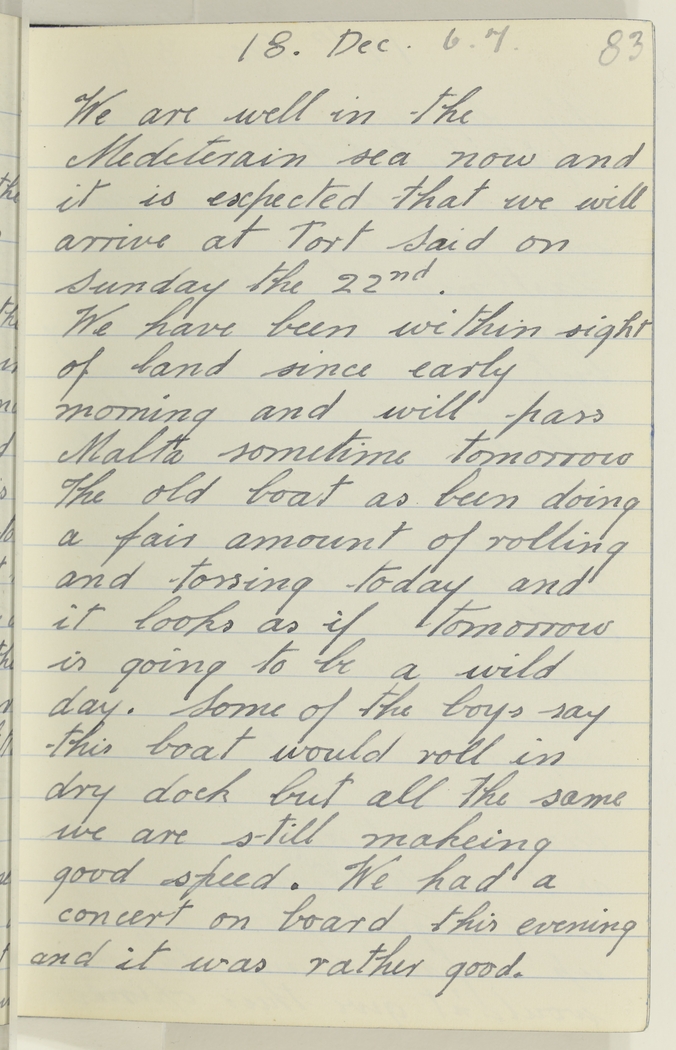 18. Dec. 6.7. 83
We are well in the
Medeterain sea now and
it is expected that we will
arrive at Port Said on
Sunday the 22nd.
We have been within sight
of land since early
morning and will pass
Malta sometime tomorrow
The old boat as been doing
a fair amount of rolling
and torsing today and
it looks as if tomorrow
is going to be a wild
day. Some of the boys say
this boat would roll in
dry dock but all the same
we are still makeing
good speed. We had a
concert on board this evening
and it was rather good.